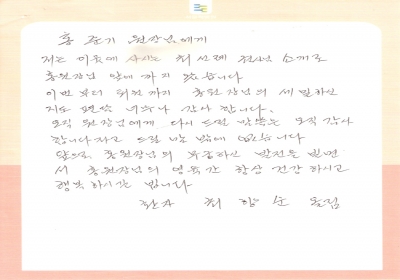 홍 준기 원장님에게
저는 이웃에 사시는 최선례 권사님 소개로
홍원장님 앞에 까지 왔습니다
이번부터 퇴원까지 홍원장님의 세밀하신
지도 편달 너무나 감사 합니다.
오직 원장님에게 다시 드릴 말씀은 오직 감사
합니다 라고 드릴 말 밖에 없습니다
앞으로 홍원장님의 무궁하신 발전을 빌면
서 홍원장님의 영육간 항상 건강하시고
행복하시길 빕니다
환자 최 함 순 올림